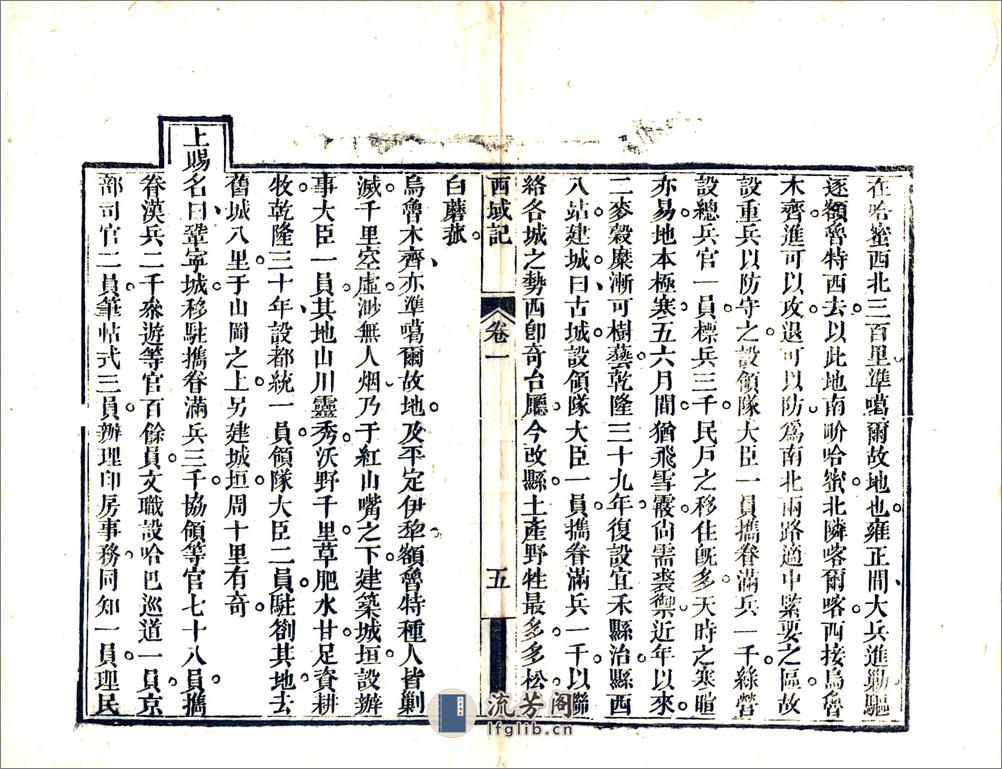 在哈蜜西北三百里準噶爾故地也雍正間大兵進勦驅
逐額魯特西去以此地南畍哈蜜北隣喀爾喀西接烏魯
木齊進可以攻退可以防爲南北兩路適中緊要之區故
設重兵以防守之設領隊大臣一員攜眷滿兵一千綠營
設總兵官一員標兵三千民戸之移住旣多天時之寒暄
亦易地本極寒五六月間猶飛雪霰尙需裘禦近年以來
二麥穀糜漸可樹藝乾隆三十九年復設宜禾縣治縣西
八站建城曰古城設領隊大臣一員攜眷滿兵一千以聯
絡各城之勢西卽奇台廳今改縣土產野牲最多多松
西域記
卷一
五
白蘑菰
烏魯木齊亦準噶爾故地及平定伊犂額魯特種人皆剿
滅千里空虛渺無人烟乃于紅山嘴之下建築城垣設辦
事大臣一員其地山川靈秀沃野千里草肥水甘足資耕
牧乾隆三十年設都統一員領隊大臣二員駐劄其地去
舊城八里于山岡之上另建城垣周十里有奇
上賜名曰鞏寧城移駐攜眷滿兵三千協領等官七十八員攜
眷漢兵二千叅遊等官百餘員文職設哈巴巡道一員京
部司官二員筆帖式三員辦理印房事務同知一員理民
流芳阁
lfglib.cn